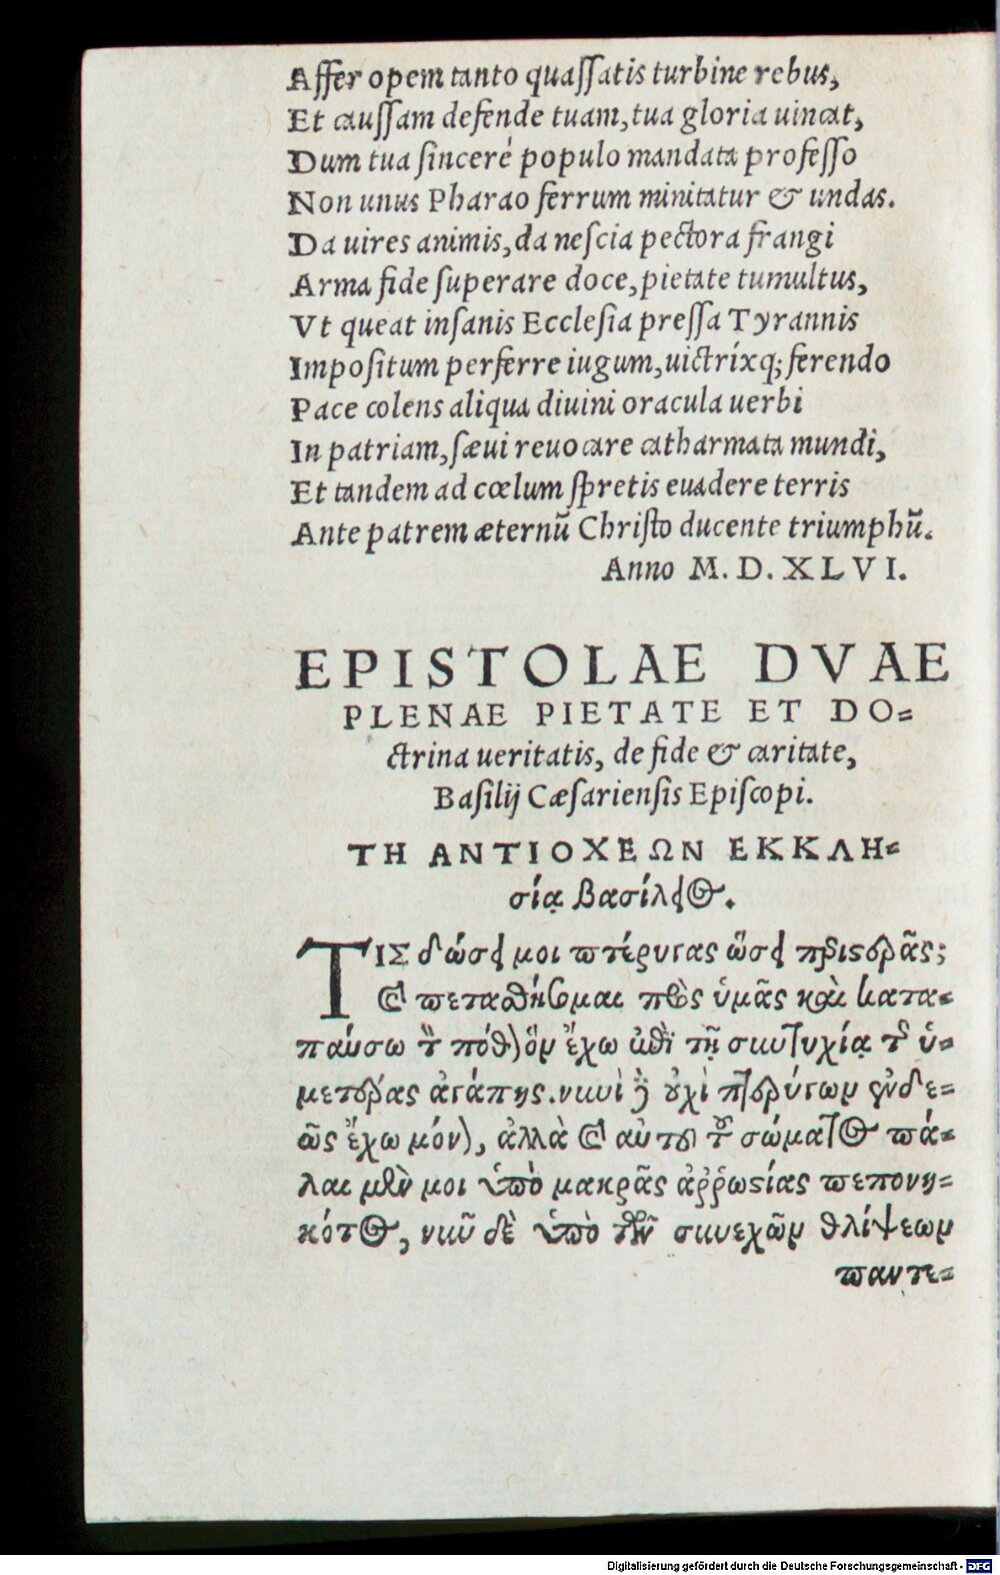 Affer opem tanto quaſſatis turbine rebus,
Et cauſſam defende tuam, tua gloria uincat,
Dum tua ſinceré populo mandata profeſſo
Non unus Pharao ferrum minitatur & undas.
Da uires animis, da neſcia pectora frangi
Arma fide ſuperare doce, pietate tumultus,
Vt queat inſanis Eccleſia preſſa Tyrannis
Impoſitum perferre iugum, uictríxq; ferendo
Pace colens aliqua diuini oracula uerbi
In patriam, ſæui reuocare catharmata mundi,
Et tandem ad cœlum ſpretis euadere terris
Ante patrem æternū Chriſto ducente triumphū.
Anno M. D. XLVI.
EPISTOLAE DVAE
PLENAE PIETATE ET DO=
ctrina ueritatis, de fide & caritate,
Baſilij Cæſarienſis Epiſcopi.
ΤΗ ΑΝΤΙΟΧΕΩΝ ΕΚΚΛΗ=
σίᾳ Βασίλειος.
ΤΙΣ δώσει μοι πτέρυγας ὥσει περιστερᾶς;
καὶ πετασθήσομαι πρὸς ὑμᾶς καὶ κατα=
παύσω τὸν πόθον ὃν ἔχω ἐπὶ τῇ συντυχίᾳ τῆς ὑ=
μετέρας ἀγάπης. νυνὶ δὲ οὐχὶ πτερύγων ἐνδε=
ῶς ἔχω μόνον, ἀλλὰ καὶ αὐτοῦ τοῦ σώματος πά=
λαι μὲν μοι ὑπὸ μακρᾶς ἀῤῥωστίας πεπονη=
κότος, νῦν δὲ ὑπὸ τῶν συνεχῶν θλίψεων
παντε=
Digitalisierung gefördert durch die Deutsche Forschungsgemeinschaft - DFG